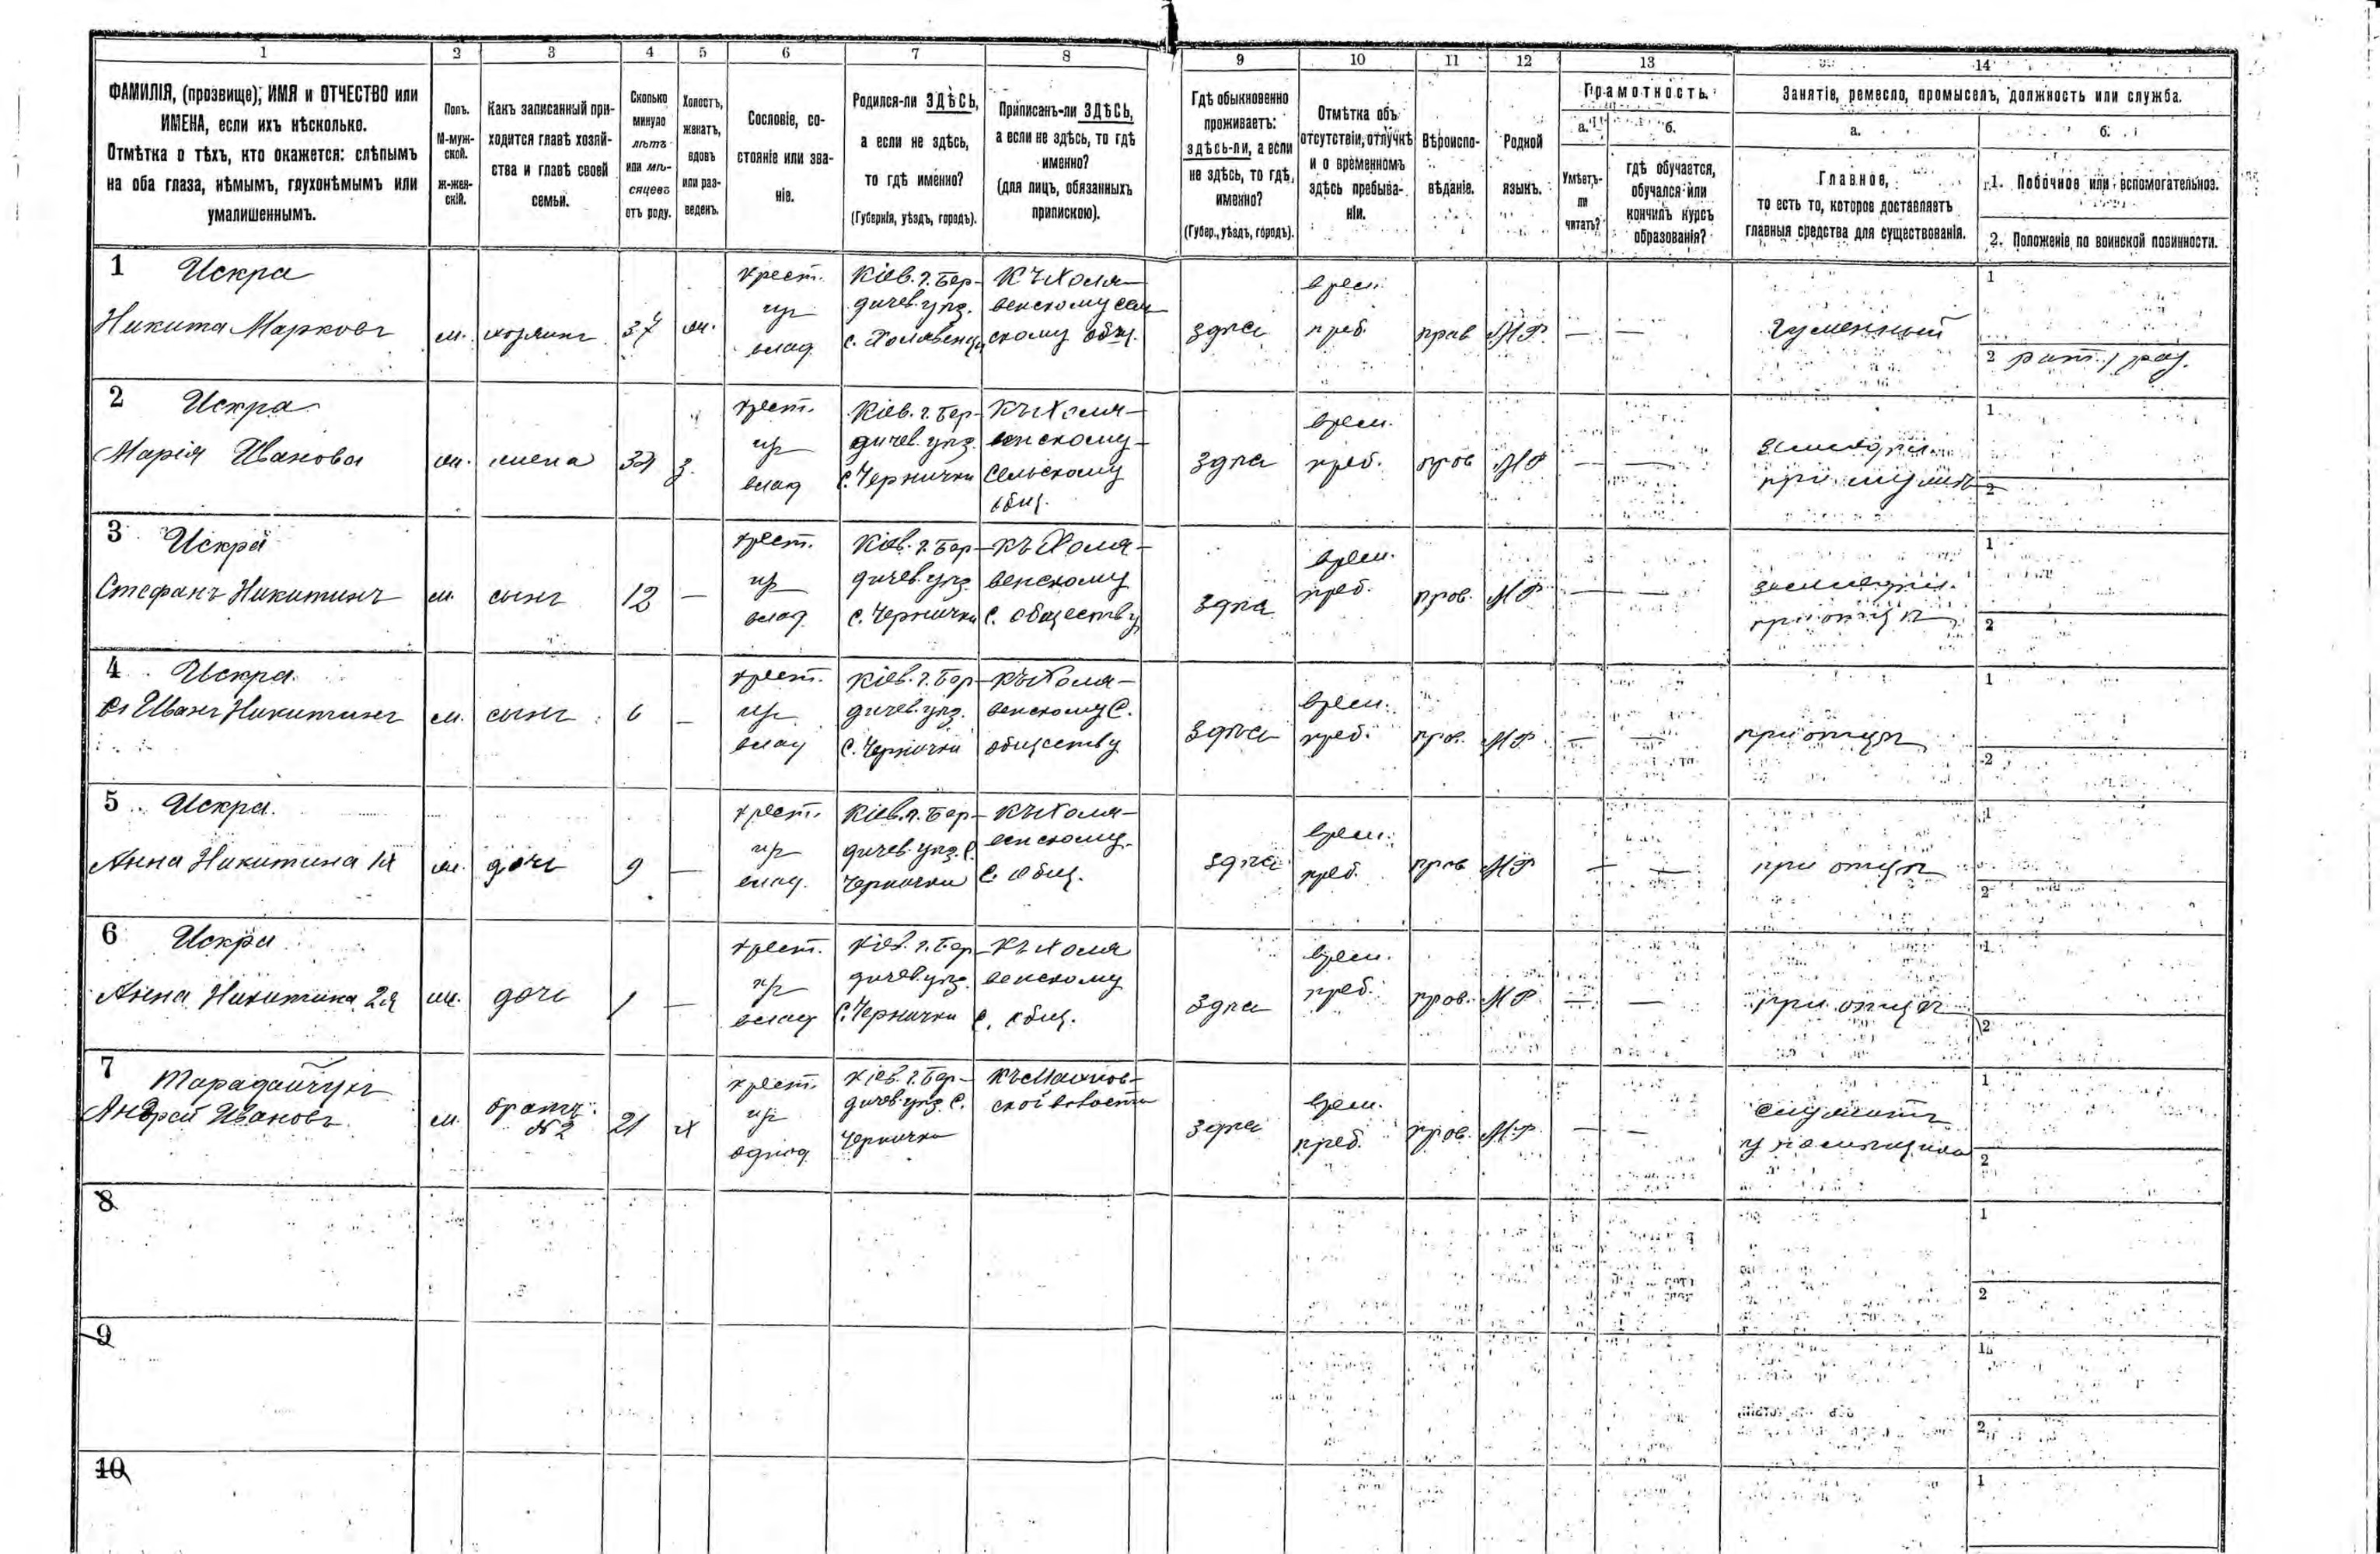 1 2 3 4 5 6 7 8 9 10 11 12 13 14
ФАМИЛІЯ, (прозвище), ИМЯ и ОТЧЕСТВО или
ИМЕНА, если ихъ нѣсколько.
Отмѣтка о тѣхъ, кто окажется: слѣпымъ
на оба глаза, нѣмымъ, глухонѣмымъ или
умалишеннымъ.
Полъ.
М-муж-
ской.
Ж-жен-
скій.
Какъ записанный при-
ходится главѣ хозяй-
ства и главѣ своей
семьи.
Сколько
минуло
лѣтъ
или мѣ-
сяцевъ
отъ роду.
Холостъ,
женатъ,
вдовъ
или раз-
веденъ.
Сословіе, со-
стояніе или зва-
ніе.
Родился-ли ЗДѢСЬ,
а если не здѣсь,
то гдѣ именно?
(Губернія, уѣздъ, городъ).
Приписанъ-ли ЗДѢСЬ,
а если не здѣсь, то гдѣ
именно?
(для лицъ, обязанныхъ
припискою).
Гдѣ обыкновенно
проживаетъ:
здѣсь-ли, а если
не здѣсь, то гдѣ,
именно?
(Губер., уѣздъ, городъ).
Отмѣтка объ
отсутствіи, отлучкѣ
и о временномъ
здѣсь пребыва-
ніи.
Вѣроиспо-
вѣданіе.
Родной
языкъ.
Грамотность.
а.
Умѣетъ-
ли
читать?
б.
гдѣ обучается,
обучался или
кончилъ курсъ
образованія?
Занятіе, ремесло, промыселъ, должность или служба.
а.
Главное,
то есть то, которое доставляетъ
главныя средства для существованія.
б.
1. Побочное или вспомогательное.
2. Положеніе по воинской повинности.
1 Искра
Никита Марковъ
м.
хозяинъ
37
крест.
из
влад
Кіев. г. Бер-
дичев. уѣз.
скому общ.
здѣсь
врем.
преб.
прав
М Р.
— —
гуменный
1
2
2 Искра
Марія Иванова
жена
з.
крест.
из
влад
Кіев. г. Бер-
дичев. уѣз.
с. Чернички
венскому
сельскому
общ.
здѣсь
врем.
преб.
прав
М Р
— —
1
2
3 Искра
Стефанъ Никитинъ
м.
сынъ
12
—
крест.
из
влад
Кіев. г. Бер-
дичев. уѣз.
с. Чернички
венскому
с. обществу
здѣсь
врем.
преб.
прав.
М Р
— —
при отцѣ
1
2
4 Искра
Иванъ Никитинъ
м.
сынъ
6
—
крест.
из
влад
Кіев. г. Бер-
дичев. уѣз.
с. Чернички
венскому с.
обществу
здѣсь
врем.
преб.
прав.
М Р
— —
при отцѣ
1
2
5 Искра
Анна Никитина 1я
ж.
дочь
9
—
крест.
из
влад.
Кіев. г. Бер-
дичев. уѣз. с.
Чернички
венскому
с. общ.
здѣсь
врем.
преб.
прав
М Р
— —
при отцѣ
1
2
6 Искра
Анна Никитина 2я
ж.
дочь
1
—
крест.
из
влад
Кіев. г. Бер-
дичев. уѣз.
с. Чернички
венскому
с. общ.
здѣсь
врем.
преб.
прав.
М Р.
— —
при отцѣ
1
2
7
Андрей Ивановъ
м.
братъ
№ 2
21
х
крест.
из
однод.
Кіев. г. Бер-
дичев. уѣз. с.
Чернички
ской волости
здѣсь
врем.
преб.
прав.
М. Р.
— —
служитъ
у помѣщика
1
2
8
1
2
9
1
2
10
1